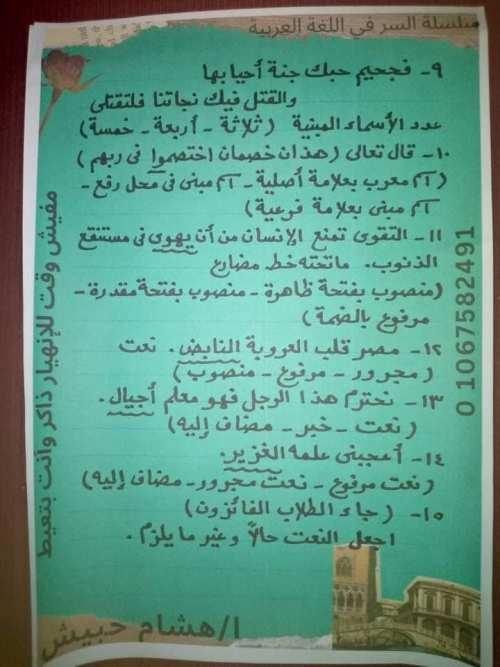 سلسلة السر في اللغة العربية
٩- فجحيم حبك جنة أحيا بها
والقتل فيك نجاتنا فلتقتلى
عدد الأسماء المبنية (ثلاثة - أربعة - خمسة)
١٠- قال تعالى (هذان خصمان اختصموا فى ربهم)
(اسم معرب بعلامة أصلية - اسم مبنى فى محل رفع -
اسم مبنى بعلامة فرعية)
١١- التقوى تمنع الإنسان من أن يهوى فى مستنقع
الذنوب. ماتحته خط مضارع
(منصوب بفتحة ظاهرة - منصوب بفتحة مقدرة -
مرفوع بالضمة)
١٢- مصر قلب العروبة النابض. نعت
(مجرور - مرفوع - منصوب)
١٣- نحترم هذا الرجل فهو معلم أجيال.
(نعت - خبر - مضاف إليه)
١٤- أعجبنى علمه الغزير.
(نعت مرفوع - نعت مجرور - مضاف إليه)
١٥- (جاء الطلاب الفائزون)
اجعل النعت حالاً وغير ما يلزم.
ا/هشام حبيش
مفيش وقت للإنهيار ذاكر وأنت بتعيط
0 1067582491